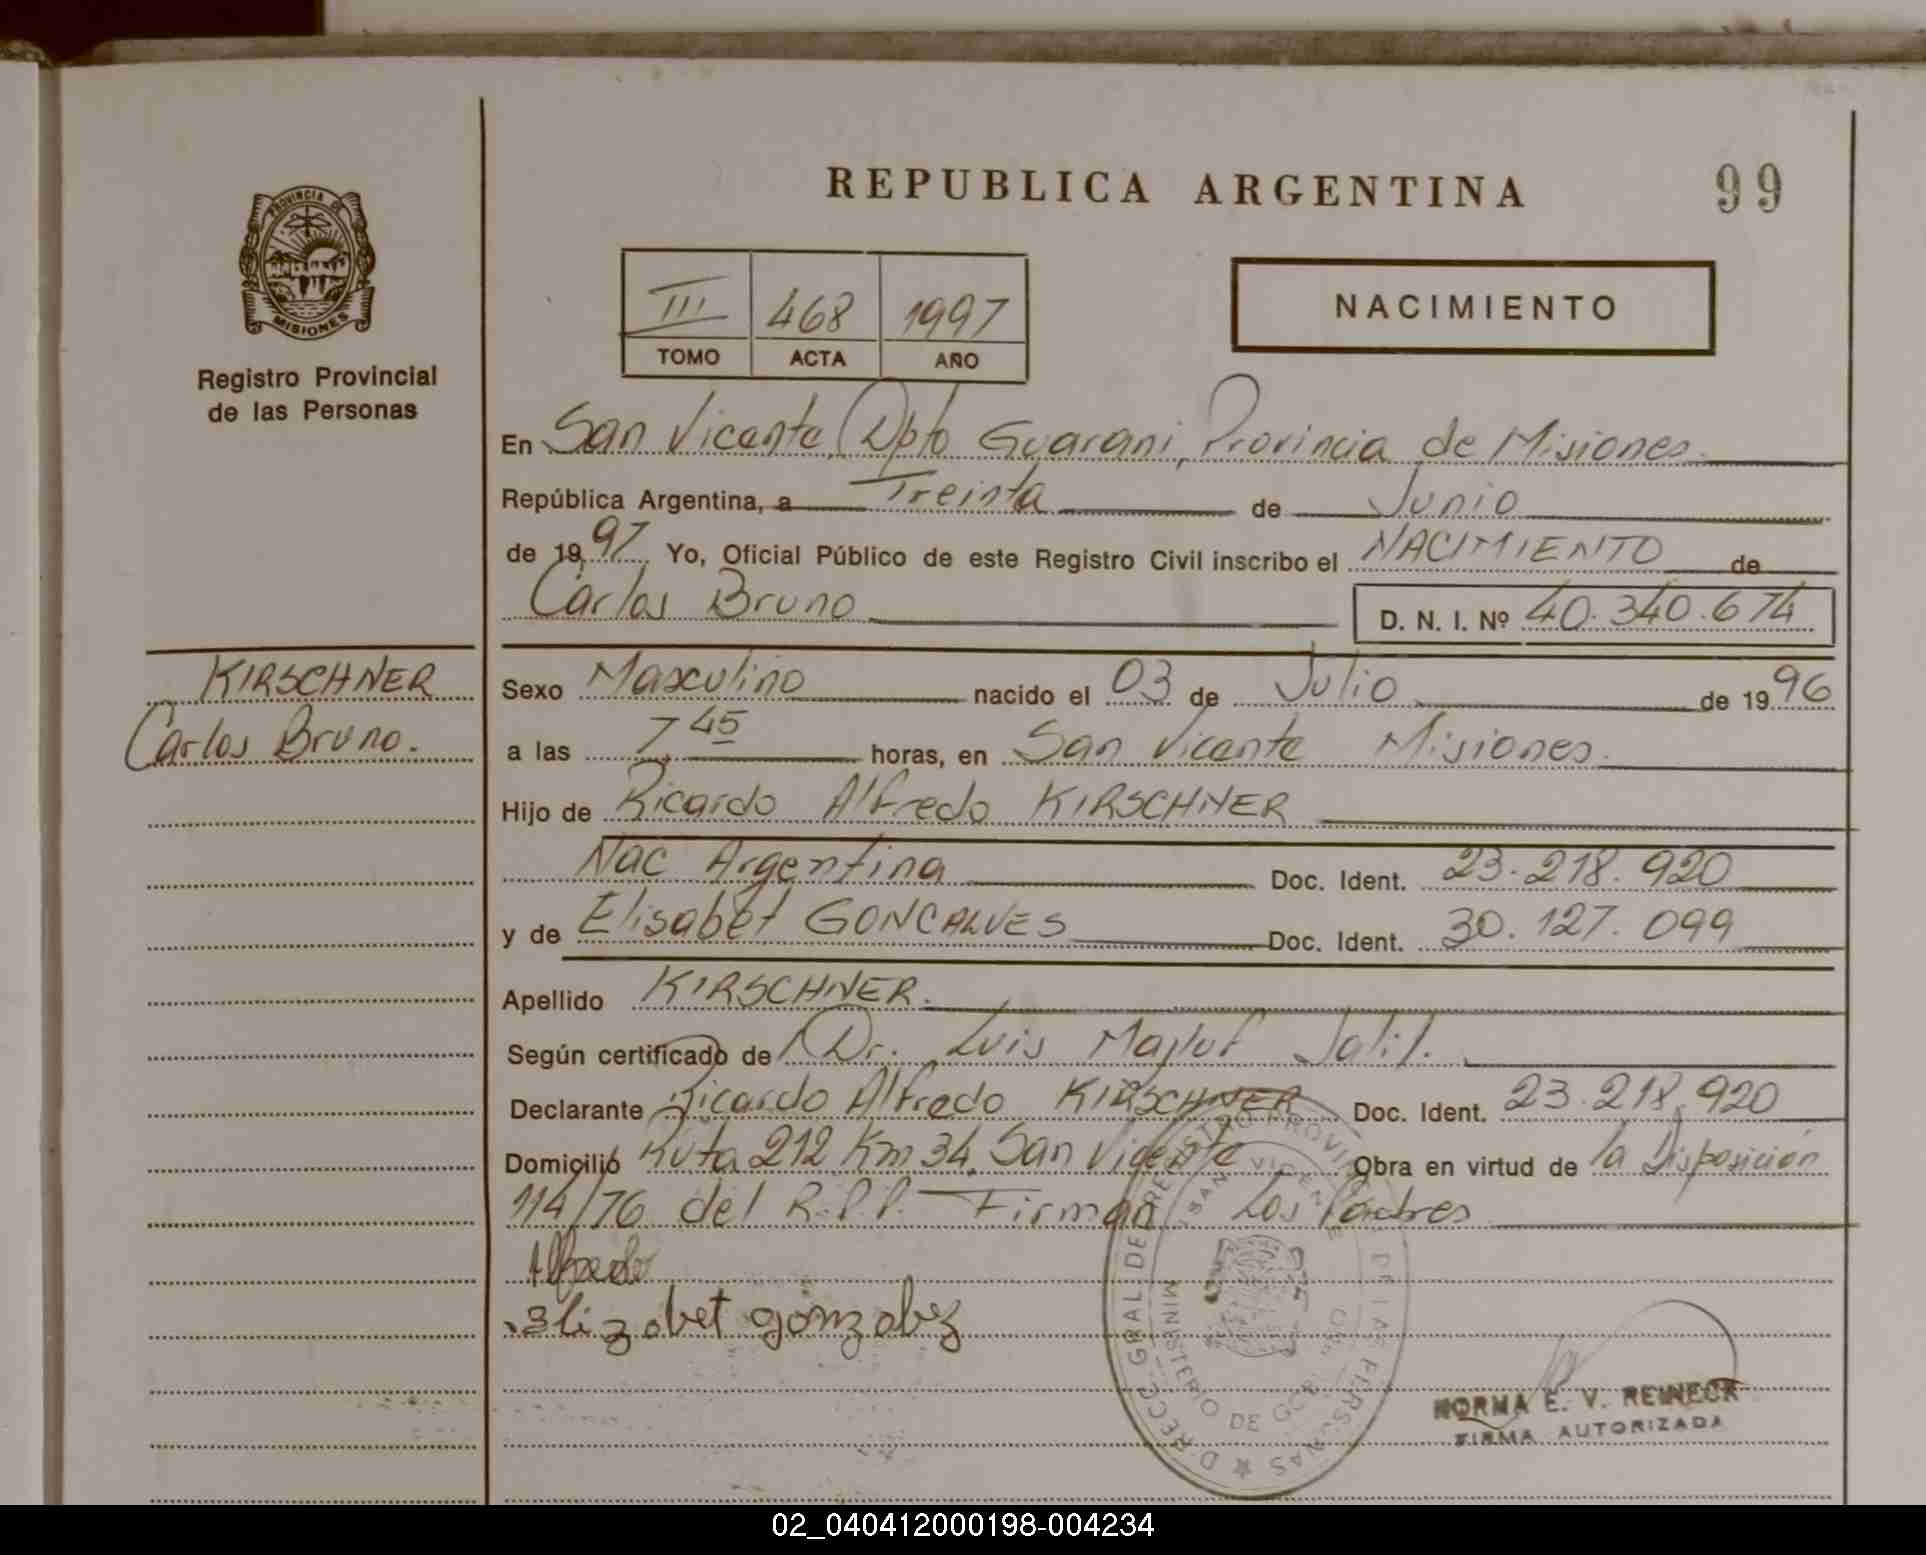 REPUBLICA ARGENTINA
99
PROVINCIA DE
MISIONES
Registro Provincial
de las Personas
III 468 1997
TOMO ACTA AÑO
NACIMIENTO
En San Vicente, Dpto Guarani, Provincia de Misiones.
República Argentina, a Treinta de Junio
de 1997 Yo, Oficial Público de este Registro Civil inscribo el NACIMIENTO de
Carlos Bruno D. N. I. Nº 40.340.674
KIRSCHNER
Carlos Bruno.
Sexo Masculino nacido el 03 de Julio de 1996
a las 7 45 horas, en San Vicente Misiones.
Hijo de Ricardo Alfredo KIRSCHNER
Nac Argentina Doc. Ident. 23.218.920
y de Elisabet GONCALVES Doc. Ident. 30.127.099
Apellido KIRSCHNER.
Según certificado de Dr. Luis Maluf Jalil.
Declarante Ricardo Alfredo KIRSCHNER Doc. Ident. 23.218.920
Domicilio Ruta 212 Km 34, San Vicente Obra en virtud de la Disposición
114/76 del R.P.P. Firman Los Padres
Alfredo
Elizabet
SAN VICENTE
MINISTERIO DE GOB
DE LAS PERSONAS
NORMA E. V. REINECK
FIRMA AUTORIZADA
02_040412000198-004234